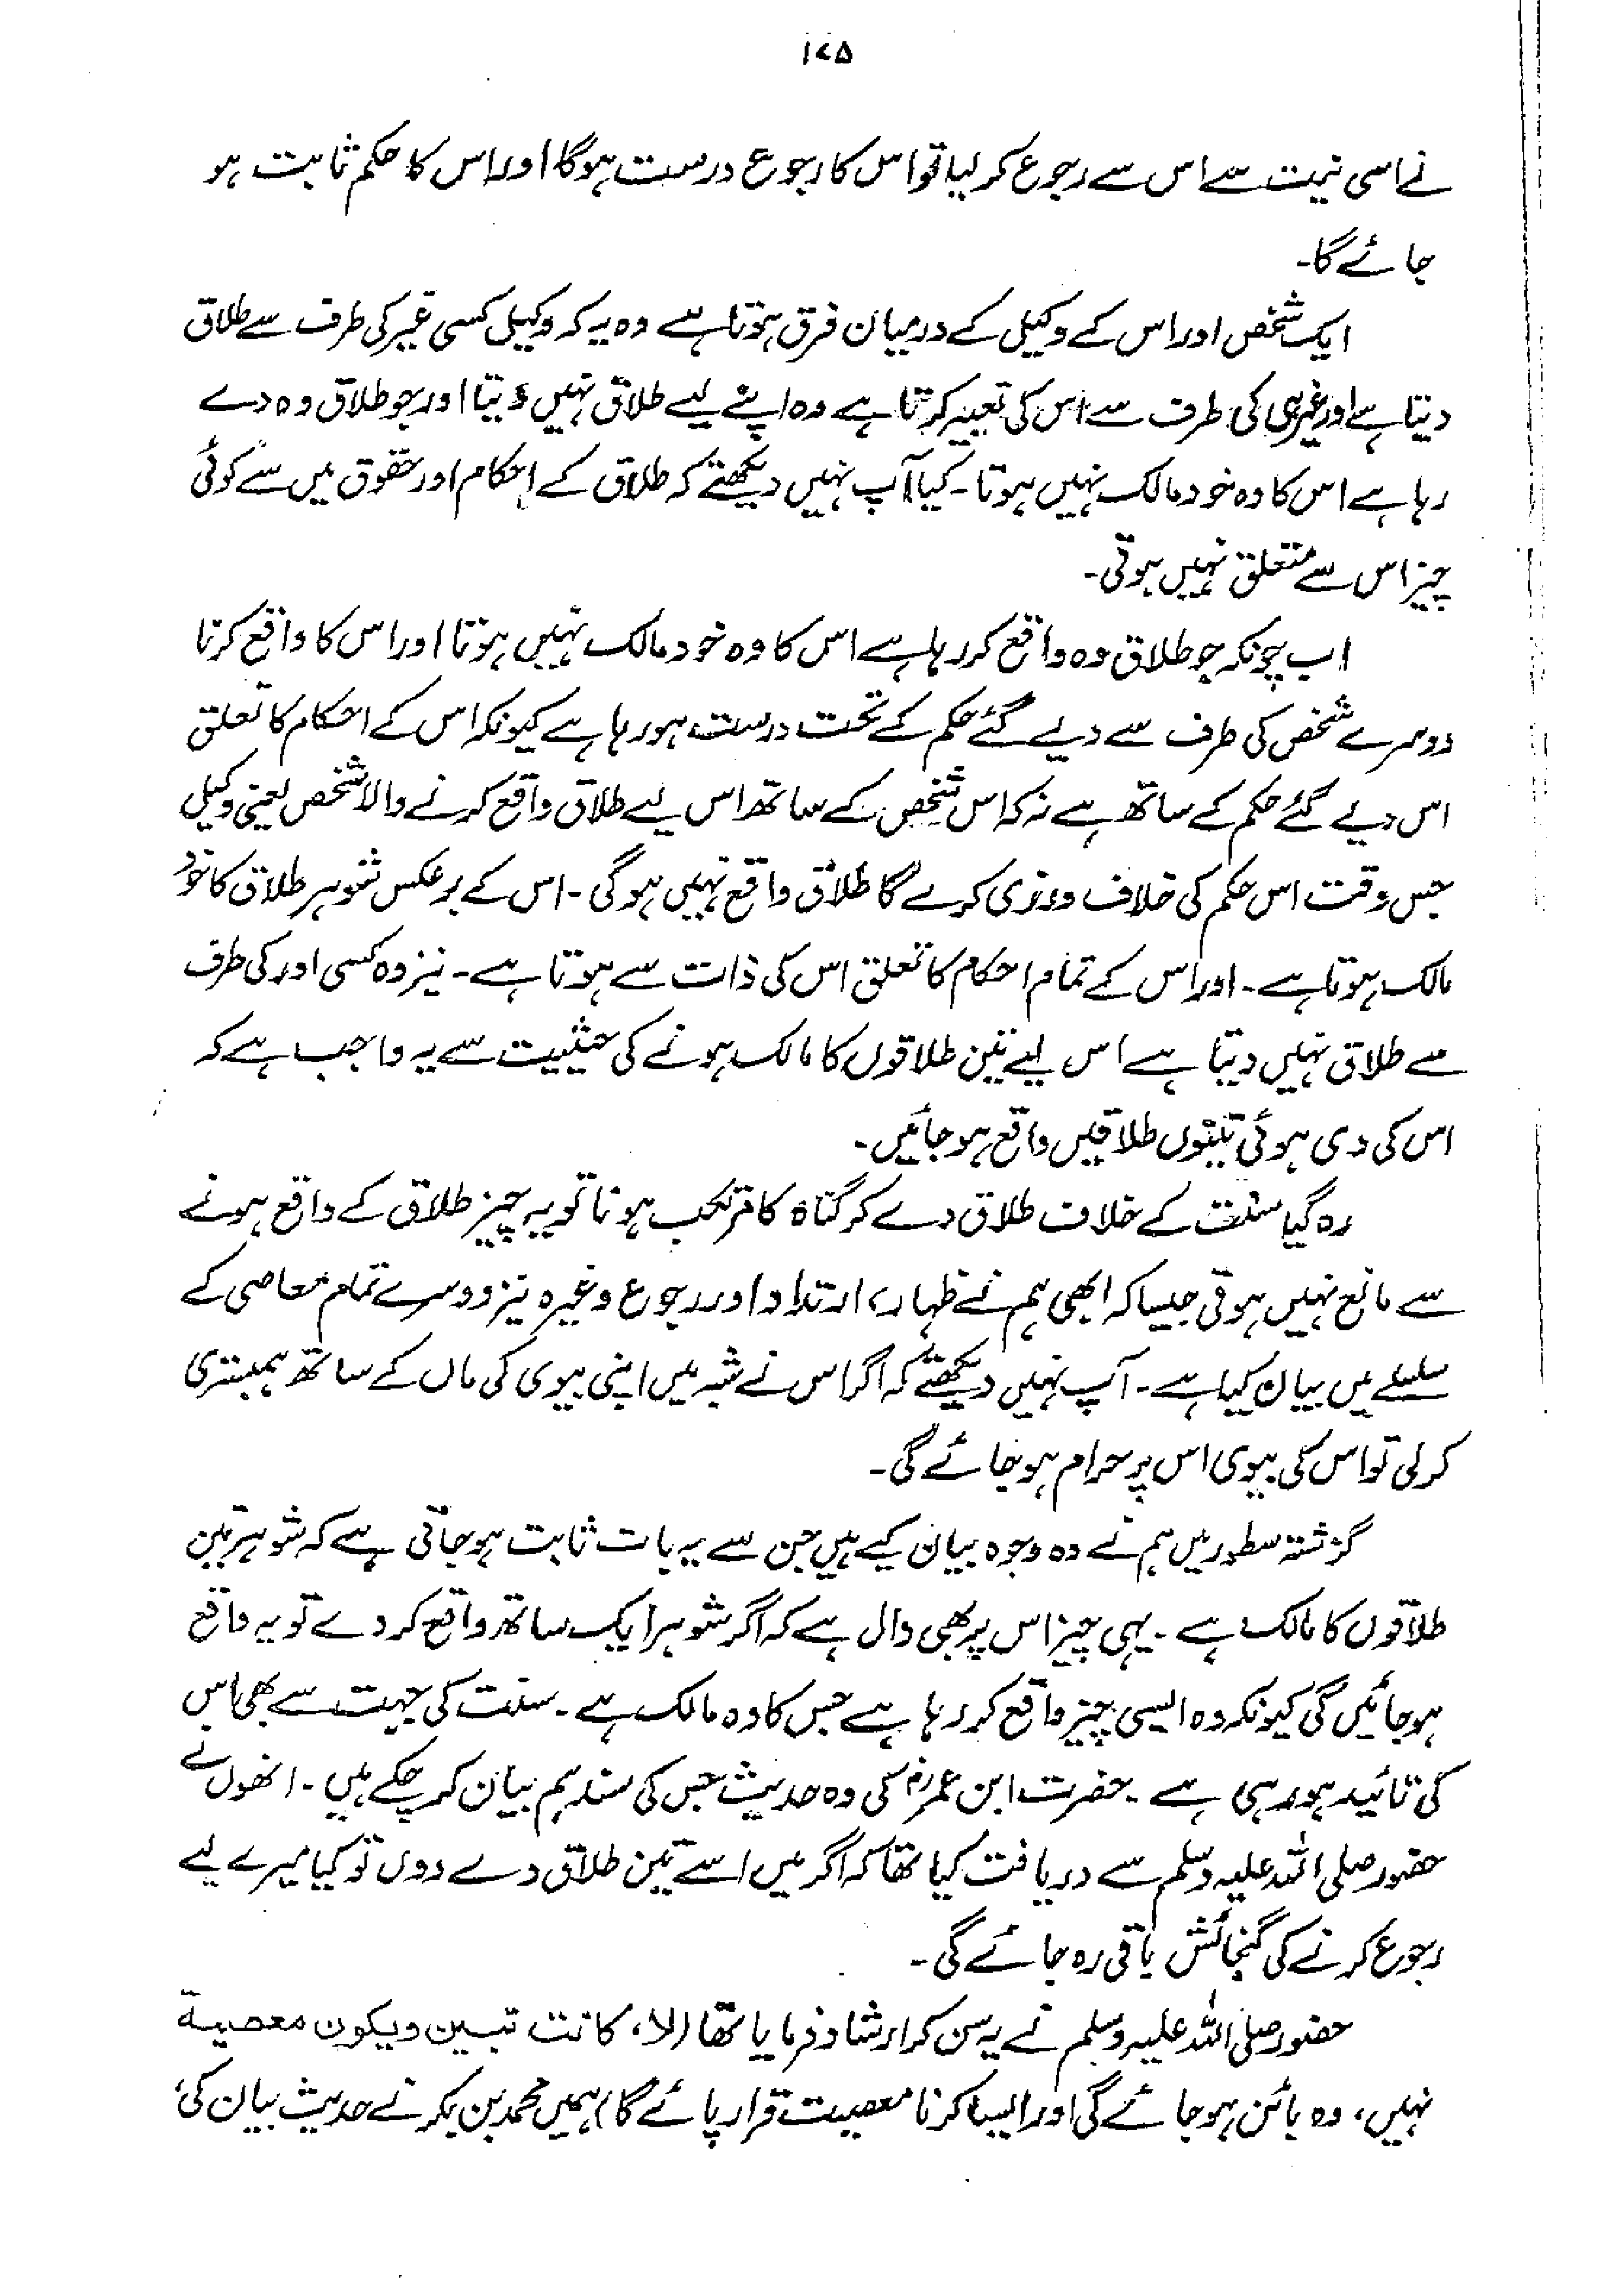 ۱۷۵
نے اسی نیت سے اس سے رجوع کر لیا تو اس کا رجوع درست ہوگا اور اس کا حکم ثابت ہو
جائے گا۔
ایک شخص اور اس کے وکیل کے درمیان فرق ہوتا ہے وہ یہ کہ وکیل کسی غیر کی طرف سے طلاق
دیتا ہے اور غیر ہی کی طرف سے اس کی تعبیر کرتا ہے وہ اپنے لیے طلاق نہیں دیتا اور جو طلاق وہ دے
رہا ہے اس کا وہ خود مالک نہیں ہوتا۔ کیا آپ نہیں دیکھتے کہ طلاق کے احکام اور حقوق میں سے کوئی
چیز اس سے متعلق نہیں ہوتی۔
اب چونکہ جو طلاق وہ واقع کر رہا ہے اس کا وہ خود مالک نہیں ہوتا اور اس کا واقع کرنا
دوسرے شخص کی طرف سے دیے گئے حکم کے تحت درست ہو رہا ہے کیونکہ اس کے احکام کا تعلق
اس دیے گئے حکم کے ساتھ ہے نہ کہ اس شخص کے ساتھ اس لیے طلاق واقع کرنے والا شخص یعنی وکیل
جس وقت اس حکم کی خلاف ورزی کرے گا طلاق واقع نہیں ہوگی۔ اس کے برعکس شوہر طلاق کا خود
مالک ہوتا ہے۔ اور اس کے تمام احکام کا تعلق اس کی ذات سے ہوتا ہے۔ نیز وہ کسی اور کی طرف
سے طلاق نہیں دیتا ہے اس لیے تین طلاقوں کا مالک ہونے کی حیثیت سے یہ واجب ہے کہ
اس کی دی ہوئی تینوں طلاقیں واقع ہو جائیں۔
رہ گیا سنت کے خلاف طلاق دے کر گناہ کا مرتکب ہونا تو یہ چیز طلاق کے واقع ہونے
سے مانع نہیں ہوتی جیسا کہ ابھی ہم نے ظہار، ارتداد اور رجوع وغیرہ نیز دوسرے تمام معاصی کے
سلسلے میں بیان کیا ہے۔ آپ نہیں دیکھتے کہ اگر اس نے شبہ میں اپنی بیوی کی ماں کے ساتھ ہمبستری
کر لی تو اس کی بیوی اس پر حرام ہو جائے گی۔
گزشتہ سطور میں ہم نے وہ وجوہ بیان کیے ہیں جن سے یہ بات ثابت ہو جاتی ہے کہ شوہر تین
طلاقوں کا مالک ہے۔ یہی چیز اس پر بھی دال ہے کہ اگر شوہر ایک ساتھ واقع کر دے تو یہ واقع
ہو جائیں گی کیونکہ وہ ایسی چیز واقع کر رہا ہے جس کا وہ مالک ہے۔ سنت کی جہت سے بھی اس
کی تائید ہو رہی ہے۔ حضرت ابن عمرؓ کی وہ حدیث جس کی سند ہم بیان کر چکے ہیں۔ انھوں نے
حضور صلی اللہ علیہ وسلم سے دریافت کیا تھا کہ اگر میں اسے تین طلاق دے دوں تو کیا میرے لیے
رجوع کرنے کی گنجائش باقی رہ جائے گی۔
حضور صلی اللہ علیہ وسلم نے یہ سن کر ارشاد فرمایا تھا (لا، کانت تبین ویکون معصیة
نہیں، وہ بائن ہو جائے گی اور ایسا کرنا معصیت قرار پائے گا) ہمیں محمد بن بکر نے حدیث بیان کی،